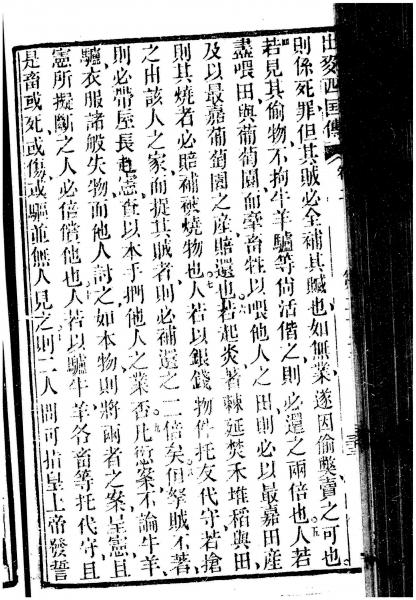 出麥西囯傳
則係死罪但其賊必全補其贓也如無業遂因偷斃賣之可也
若見其偷物不拘牛羊驢等尚活偕之則必還之兩倍也人若
盡喂田與葡萄園而牽畜牲以喂他人之田則必以最嘉田產
及以最嘉葡萄園之產賠還也若起炎著棘延焚禾堆稻與田
則其燒者必賠補被燒物也人若以銀錢物件托友代守若搶
之出該人之家而捉其賊者則必補還之二倍矣但拏賊不著
則必帶屋長赴憲查以本手捫他人之業否凡愆案不論牛羊
驢衣服諸般失物而他人討之如本物則將兩者之案呈憲且
憲所擬斷之人必倍償他也人若以驢牛羊各畜等托代守且
是畜或死或傷或驅並無人見之則二人間可指皇上帝發誓